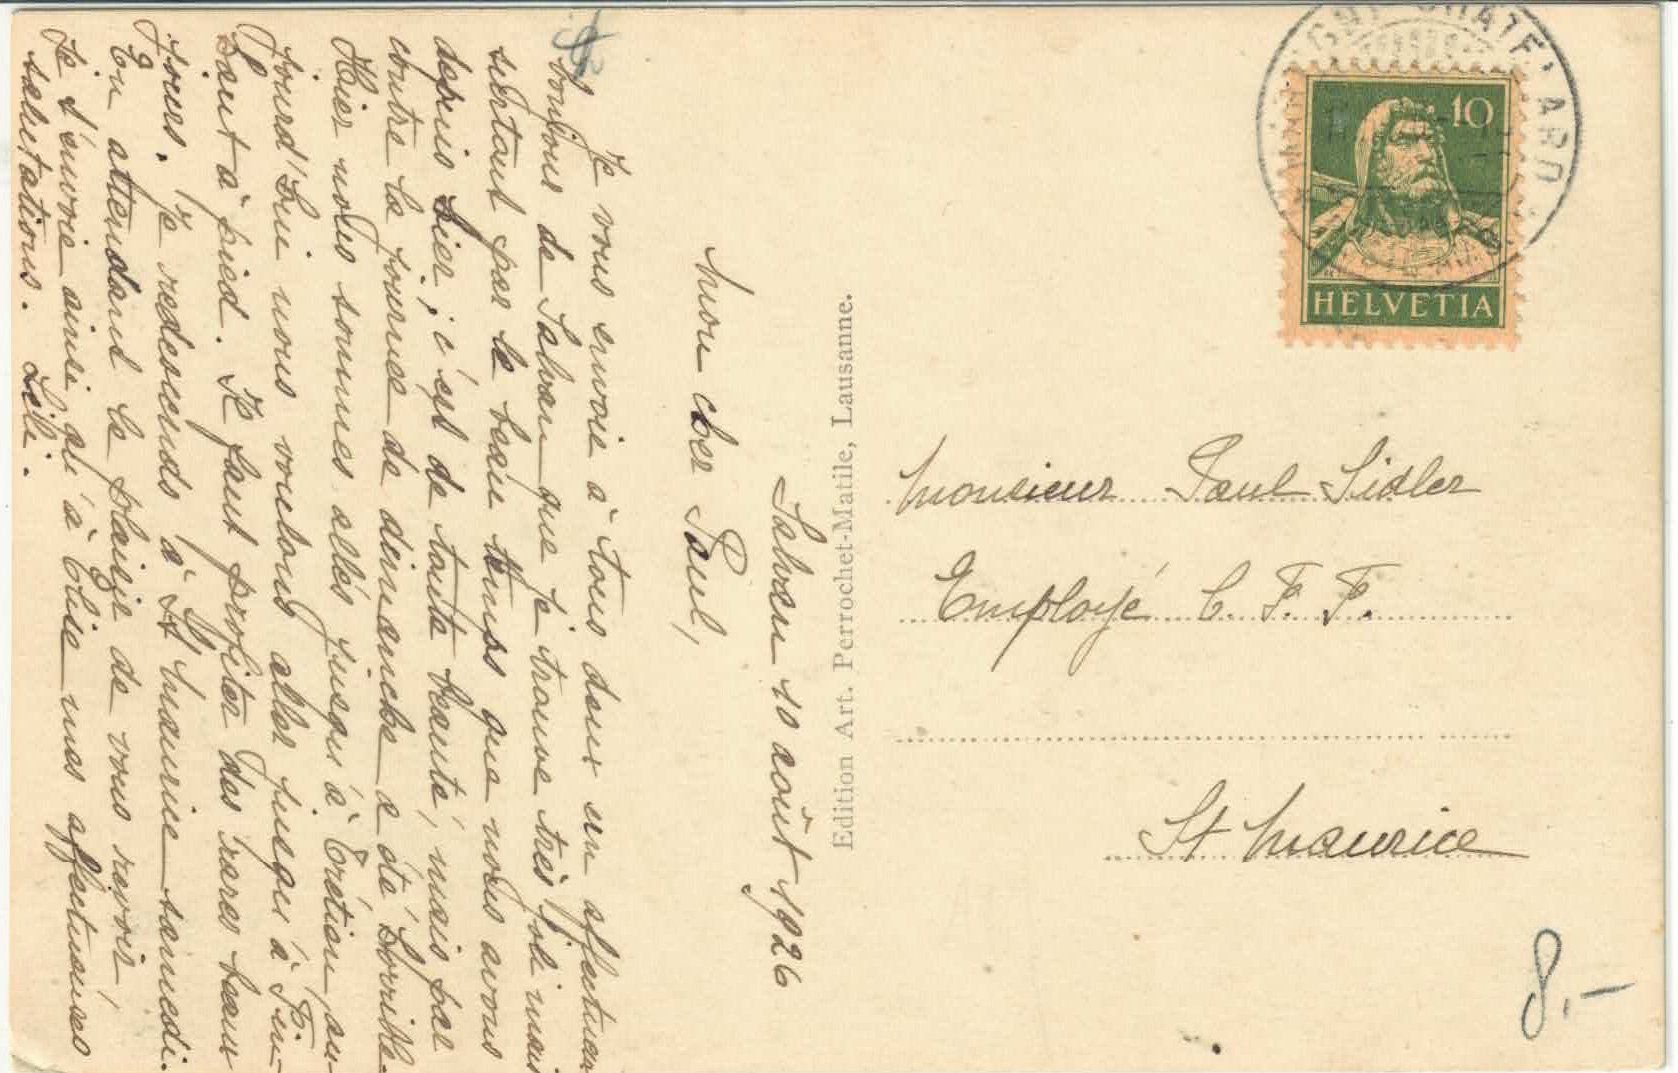 Salvan 10 août 1926
Mon cher Paul,
Je vous envoie à tous deux un affectueux
bonjour de Salvan que je trouve très joli mais
surtout par le beau temps que nous avons
depuis hier; c'est de toute beauté, mais par
contre la journée de dimanche a été horrible.
Hier nous sommes allés jusqu'à Trétien, au-
jourd'hui nous voulons aller jusqu'à Fin-
haut à pied. Il faut profiter des rares beaux
jours. Je redescends à St Maurice samedi.
En attendant le plaisir de vous revoir,
je t'envoie ainsi qu'à Elise mes affectueuses
salutations. Lili.
Edition Art. Perrochet-Matile, Lausanne.
10
HELVETIA
Monsieur Paul Sidler
Employé C. F. F.
St Maurice
8.-